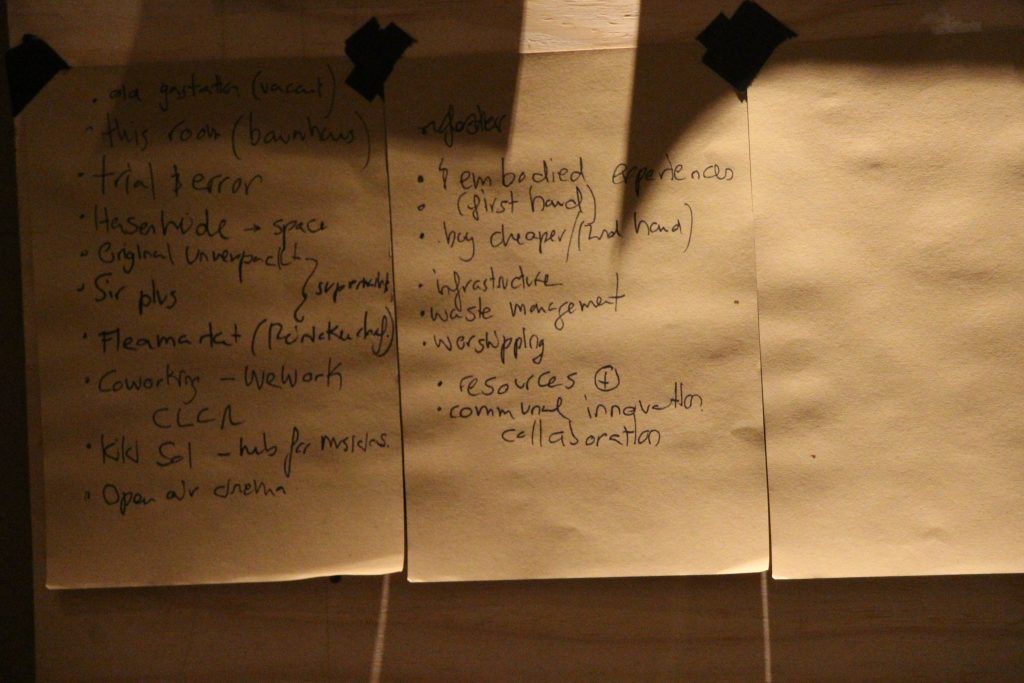 • old gastation (vacant)
• this room (baumhaus)
• trial & error
• Hasenhide → space
• Original Unverpackt
• Sir plus } supermarket
• Fleamarket
• Coworking - WeWork
CLCR
• Kiki Sol - hub for
• Open air cinema
• embodied experiences
• (first hand)
• buy cheaper/(2nd hand)
• infrastructure
• waste management
• worshipping
• resources ⊕
• communal innovation
collaboration